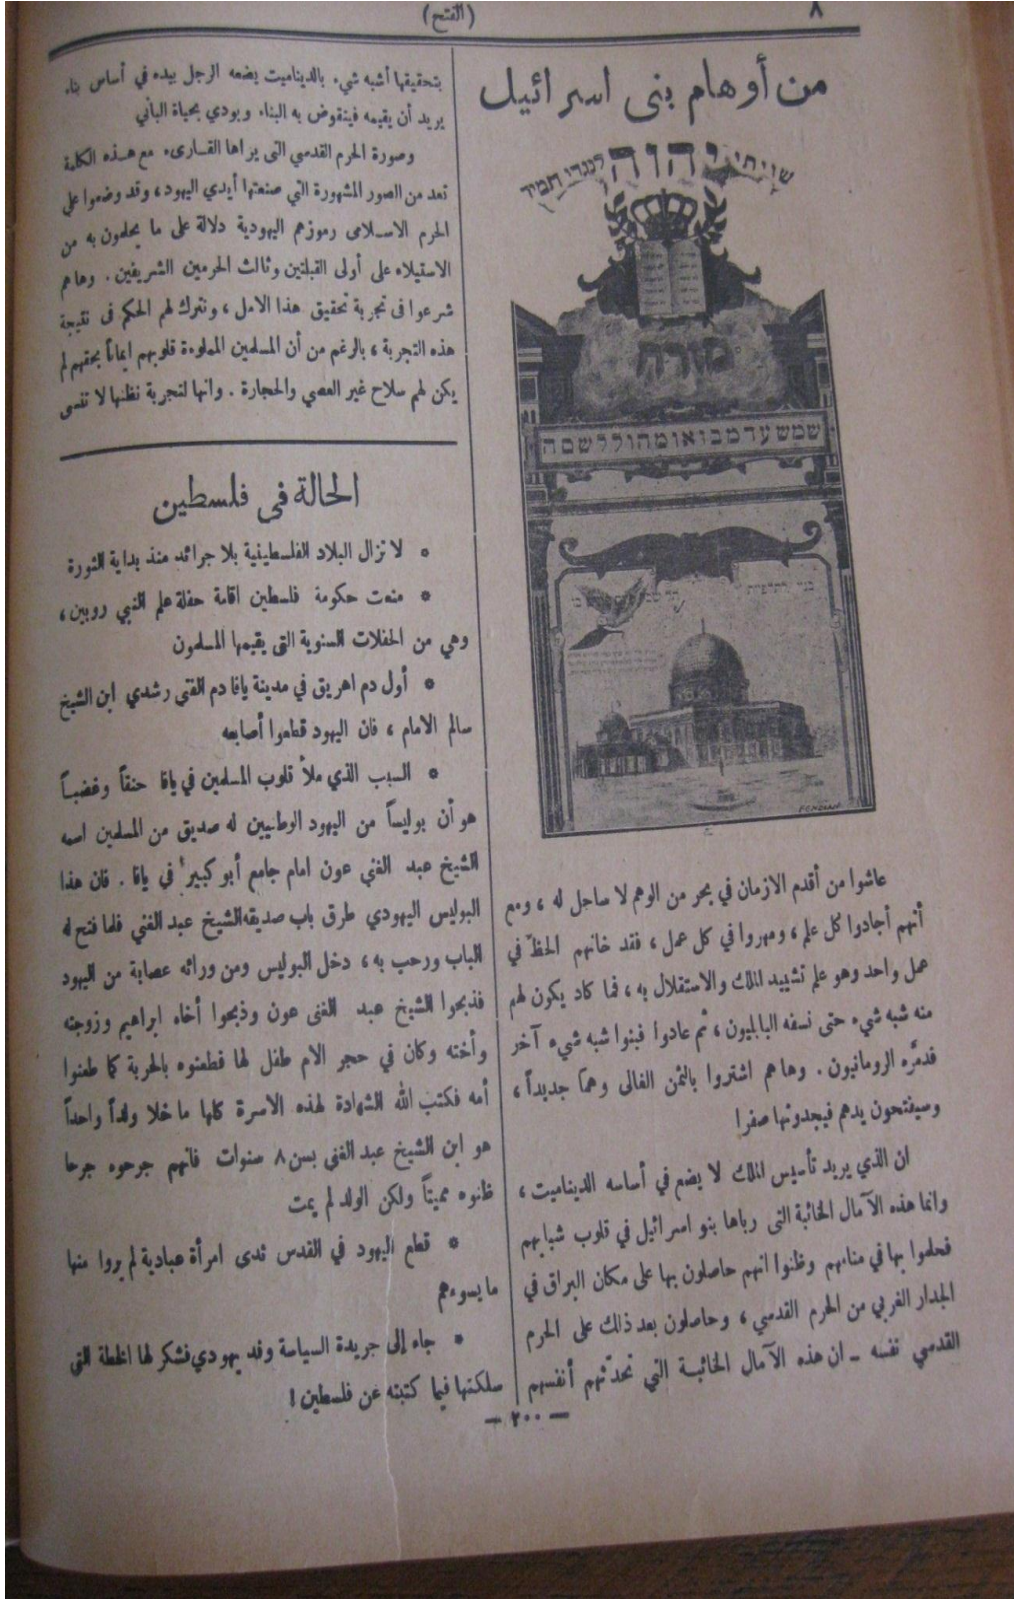 ٨
(الفتح)
من أوهام بنى اسرائيل
שויתי יהוה לנגדי תמיד
מזרח
שמש עד מבואו מהולל שם ה
עاشوا من أقدم الازمان في بحر من الوهم لا ساحل له ، ومع
أنهم أجادوا كل علم ، ومهروا في كل عمل ، فقد خانهم الحظّ في
عمل واحد وهو علم تشييد الملك والاستقلال به ، فما كاد يكون لهم
منه شبه شيء حتى نسفه البابليون ، ثم عادوا فبنوا شبه شيء آخر
فدمّره الرومانيون . وها هم اشتروا بالثمن الغالى وهماً جديداً ،
وسيفتحون يدهم فيجدونها صفرا
ان الذي يريد تأسيس الملك لا يضع في أساسه الديناميت ،
وانما هذه الآمال الخائبة التى رباها بنو اسرائيل في قلوب شبابهم
فحلموا بها في منامهم وظنوا انهم حاصلون بها على مكان البراق في
الجدار الغربي من الحرم القدسي ، وحاصلون بعد ذلك على الحرم
القدسي نفسه ــ ان هذه الآمال الخائبة التي تحدّثهم أنفسهم
بتحقيقها أشبه شيء بالديناميت يضعه الرجل بيده في أساس بناء
يريد أن يقيمه فينقوض به البناء ويودي بحياة الباني
وصورة الحرم القدسي التى يراها القارىء مع هذه الكلمة
تعد من الصور المشهورة التي صنعتها أيدي اليهود ، وقد وضعوا على
الحرم الاسلامى رموزهم اليهودية دلالة على ما يحلمون به من
الاستيلاء على أولى القبلتين وثالث الحرمين الشريفين . وها هم
شرعوا فى تجربة تحقيق هذا الامل ، ونترك لهم الحكم فى نتيجة
هذه التجربة ، بالرغم من أن المسلمين المملوءة قلوبهم ايماناً بحقهم لم
يكن لهم سلاح غير العصي والحجارة . وانها لتجربة نظنها لا تنسى
الحالة في فلسطين
* لا تزال البلاد الفلسطينية بلا جرائد منذ بداية الثورة
* منعت حكومة فلسطين اقامة حفلة علم النبي روبين ،
وهي من الحفلات السنوية التى يقيمها المسلمون
* أول دم اهريق في مدينة يافا دم الفتى رشدي ابن الشيخ
سالم الامام ، فان اليهود قطعوا أصابعه
* السبب الذي ملأ قلوب المسلمين في يافا حنقاً وغضباً
هو أن بوليساً من اليهود الوطنيين له صديق من المسلمين اسمه
الشيخ عبد الغني عون امام جامع أبو كبير في يافا . فان هذا
البوليس اليهودي طرق باب صديقه الشيخ عبد الغني فلما فتح له
الباب ورحب به ، دخل البوليس ومن ورائه عصابة من اليهود
فذبحوا الشيخ عبد الغنى عون وذبحوا أخاه ابراهيم وزوجته
وأخته وكان في حجر الام طفل لها فطعنوه بالحربة كما طعنوا
أمه فكتب الله الشهادة لهذه الاسرة كلها ما خلا ولداً واحداً
هو ابن الشيخ عبد الغنى بسن ٨ سنوات فانهم جرحوه جرحا
ظنوه مميتاً ولكن الولد لم يمت
* قطع اليهود في القدس ثدى امرأة عبادية لم يروا منها
ما يسوءهم
* جاء إلى جريدة السياسة وفد يهودي فشكر لها الخطة التى
سلكتها فيما كتبته عن فلسطين !
— ٢٠٠ —